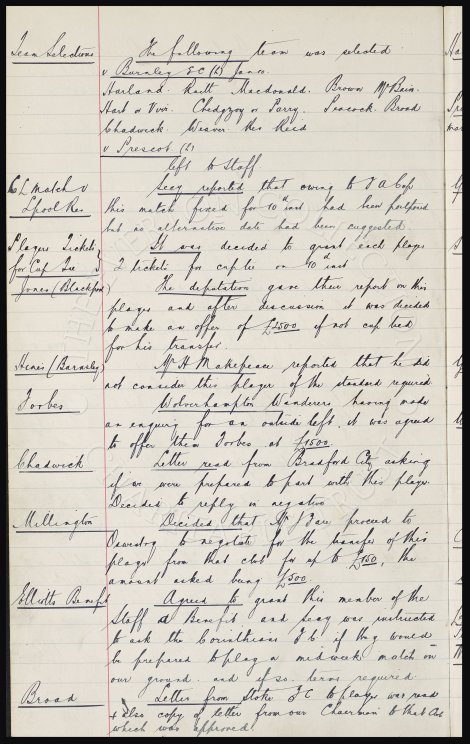 Team Selections
The following team was selected
v Burnley E C (L) Janes.
Harland. Raitt Macdonald. Brown McBain.
Hart or Virr. Chedgzoy or Parry. Peacock. Broad
Chadwick. Weaver. Res Reid
v Prescot (L)
left to Staff
C L Match v
L'pool Res
Secy reported that owing to F A Cup
this match fixed for 10th inst. had been postponed
but no alternative date had been suggested.
Players Tickets
for Cup Tie
It was decided to grant each player
2 tickets for cup tie on 10th inst
Jones (Blackpool)
The deputation gave their report on this
player and after discussion it was decided
to make an offer of £2500 if not cup tied
for his transfer.
Hines (Barnsley)
Mr H Makepeace reported that he did
not consider this player of the standard required
Forbes
Wolverhampton Wanderers having made
an enquiry for an outside left, it was agreed
to offer them Forbes at £1500.
Chadwick
Letter read from Bradford City asking
if we were prepared to part with this player.
Decided to reply in negative
Millington
Decided that Mr Fare proceed to
Oswestry to negotiate for the transfer of this
player from that club for up to £150, the
amount asked being £500.
Elliotts Benefit
Agreed to grant this member of the
Staff a Benefit and Secy was instructed
to ask the Corinthians F C if they would
be prepared to play a midweek match on
our ground. and if so. terms required.
Broad
Letter from Stoke F C to player was read
& also copy of letter from our Chairman to that Club
which was approved.